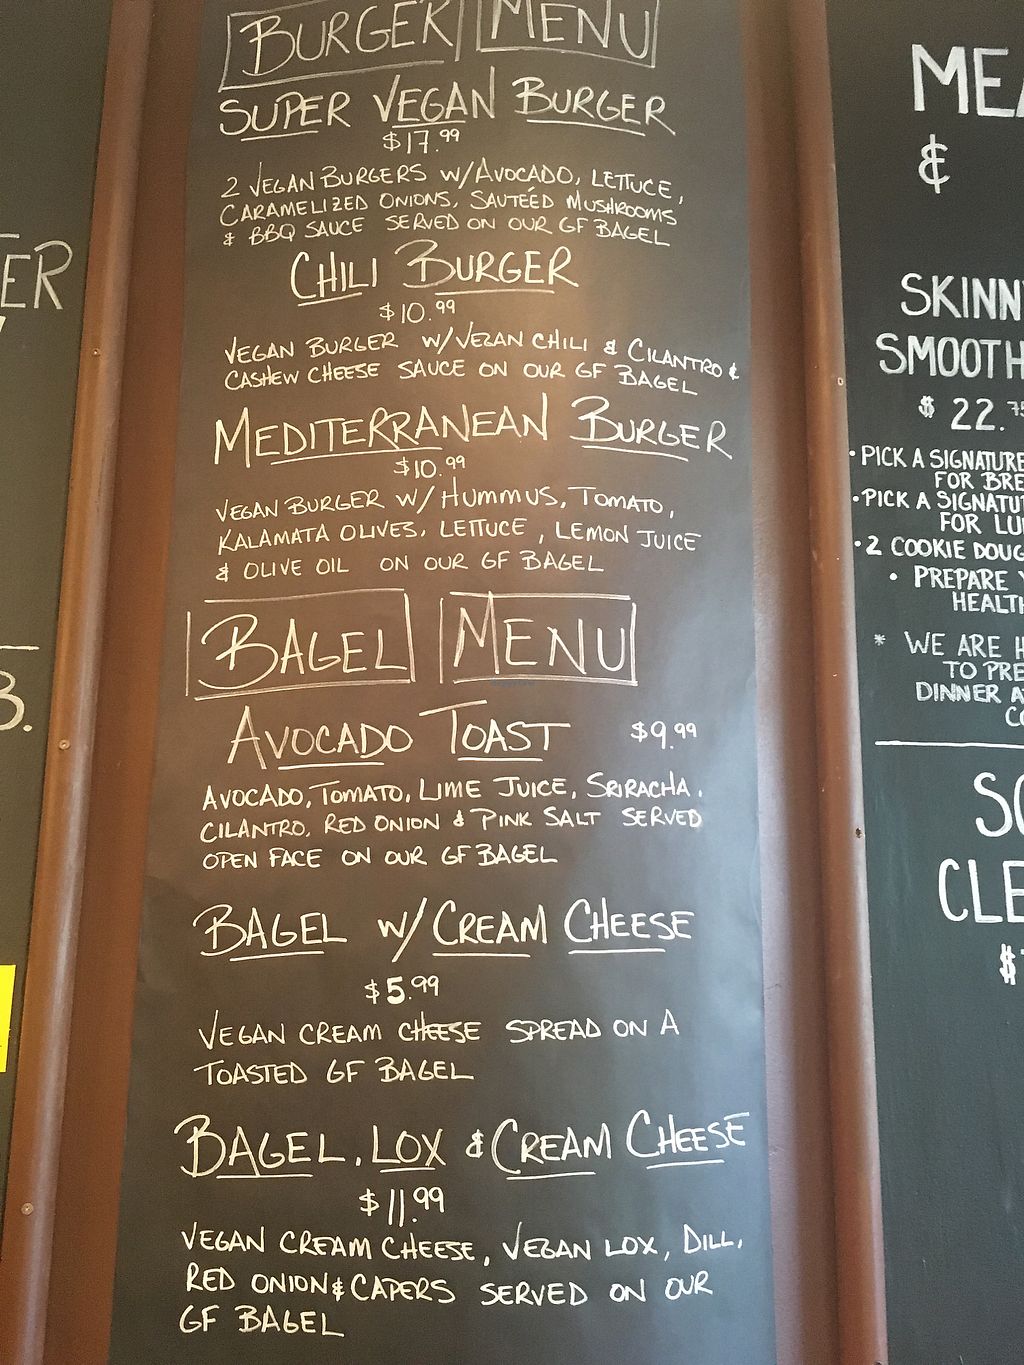 BURGER MENU
SUPER VEGAN BURGER
$17.99
2 VEGAN BURGERS W/AVOCADO, LETTUCE,
CARAMELIZED ONIONS, SAUTÉED MUSHROOMS
& BBQ SAUCE SERVED ON OUR GF BAGEL
CHILI BURGER
$10.99
VEGAN BURGER W/VEGAN CHILI & CILANTRO &
CASHEW CHEESE SAUCE ON OUR GF BAGEL
MEDITERRANEAN BURGER
$10.99
VEGAN BURGER W/ HUMMUS, TOMATO,
KALAMATA OLIVES, LETTUCE, LEMON JUICE
& OLIVE OIL ON OUR GF BAGEL
BAGEL MENU
AVOCADO TOAST $9.99
AVOCADO, TOMATO, LIME JUICE, SRIRACHA,
CILANTRO, RED ONION & PINK SALT SERVED
OPEN FACE ON OUR GF BAGEL
BAGEL W/CREAM CHEESE
$5.99
VEGAN CREAM CHEESE SPREAD ON A
TOASTED GF BAGEL
BAGEL, LOX & CREAM CHEESE
$11.99
VEGAN CREAM CHEESE, VEGAN LOX, DILL,
RED ONION & CAPERS SERVED ON OUR
GF BAGEL
ER
B.
MEA
&
SKINN
SMOOTH
$22.75
• PICK A SIGNATURE
FOR BRE
• PICK A SIGNATU
FOR LU
• 2 COOKIE DOUG
• PREPARE Y
HEALTH
* WE ARE H
TO PRE
DINNER A
CO
SO
CLE
$